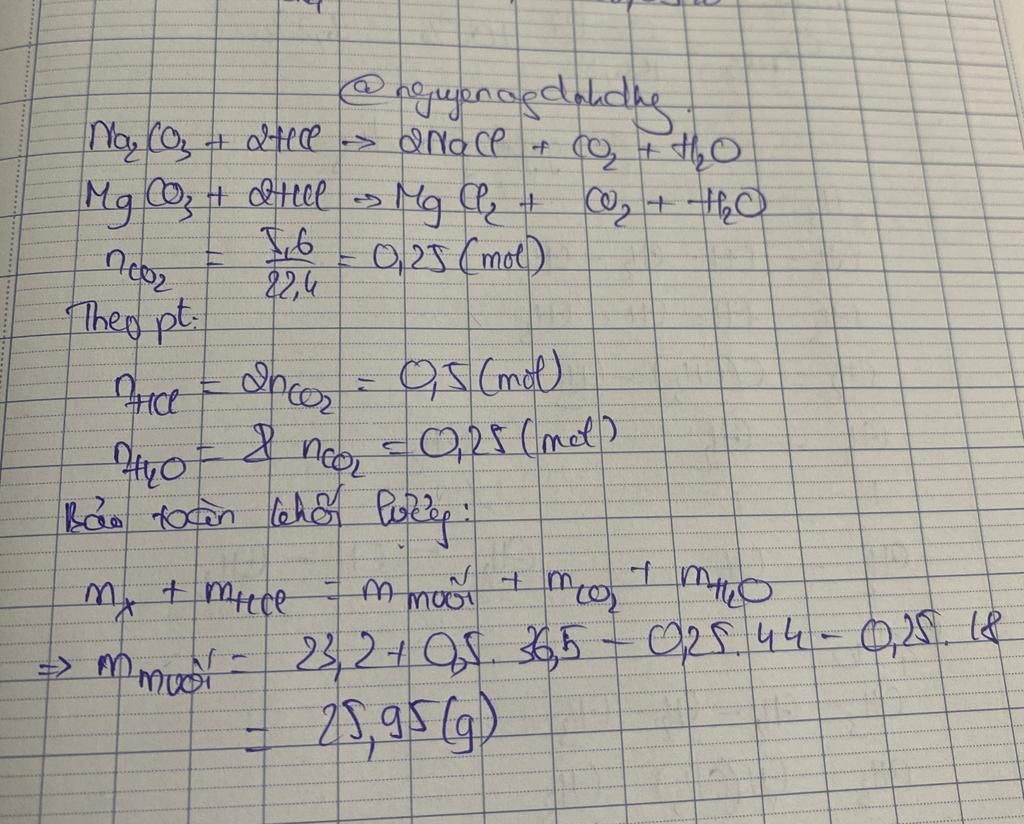 Na₂CO₃ + 2HCl → 2NaCl + CO₂ + H₂O
MgCO₃ + 2HCl → MgCl₂ + CO₂ + H₂O
nCO₂ = 5,6/22,4 = 0,25 (mol)
Theo pt:
nHCl = 2nCO₂ = 0,5 (mol)
nH₂O = nCO₂ = 0,25 (mol)
Bảo toàn khối lượng:
mx + mHCl = m muối + mCO₂ + mH₂O
⇒ m muối = 23,2 + 0,5 . 36,5 - 0,25 . 44 - 0,25 . 18
= 25,95 (g)